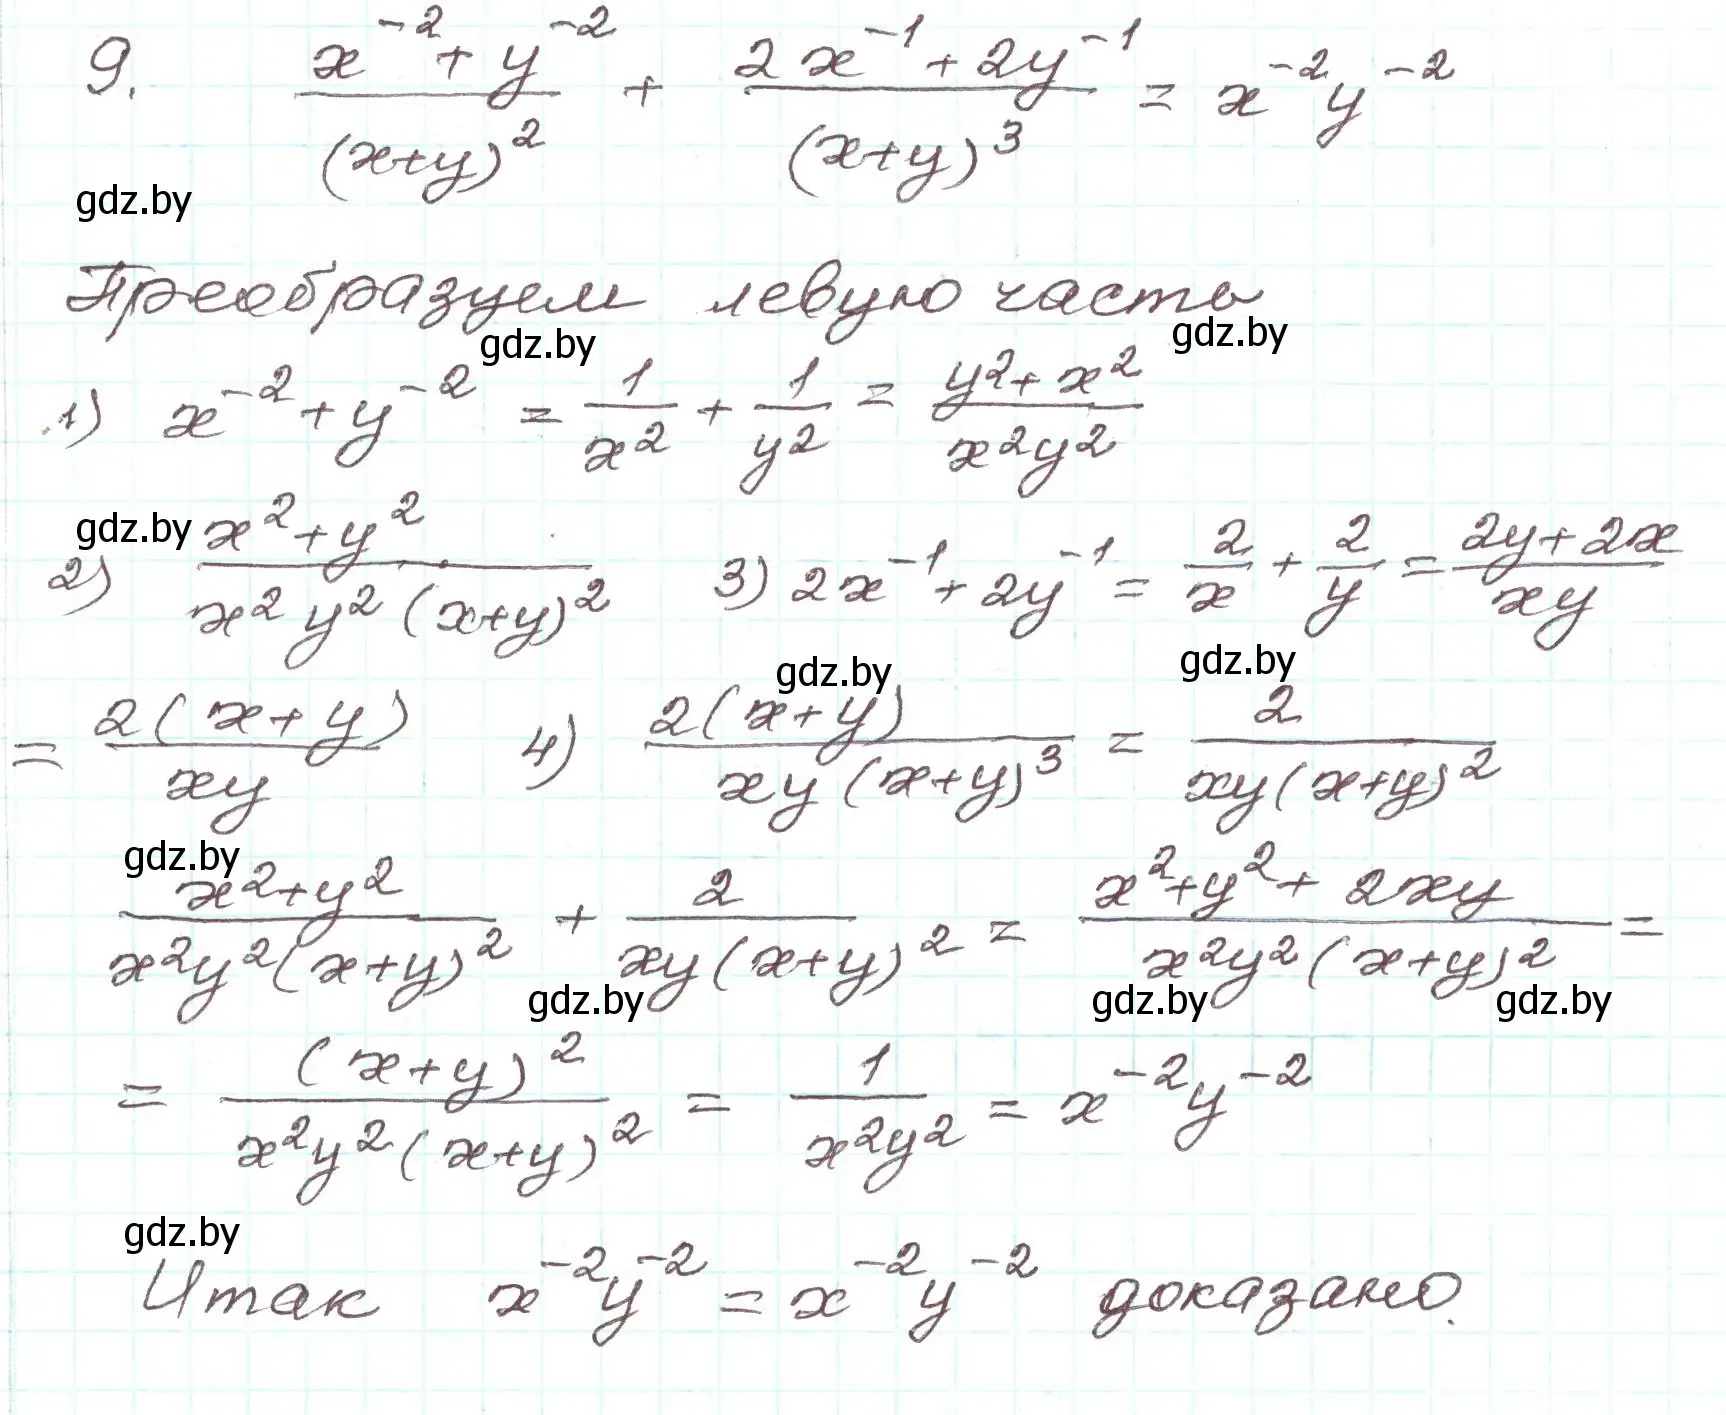 9. (x⁻² + y⁻²)/(x+y)² + (2x⁻¹ + 2y⁻¹)/(x+y)³ = x⁻²y⁻²
gdz.by
Преобразуем левую часть
gdz.by gdz.by
1) x⁻² + y⁻² = 1/x² + 1/y² = (y² + x²)/(x²y²)
gdz.by
2) (x² + y²)/(x²y²(x+y)²) 3) 2x⁻¹ + 2y⁻¹ = 2/x + 2/y = (2y + 2x)/(xy)
gdz.by gdz.by
= 2(x+y)/(xy) 4) 2(x+y)/(xy(x+y)³) = 2/(xy(x+y)²)
gdz.by
(x² + y²)/(x²y²(x+y)²) + 2/(xy(x+y)²) = (x² + y² + 2xy)/(x²y²(x+y)²) =
gdz.by gdz.by gdz.by
= (x+y)²/(x²y²(x+y)²) = 1/(x²y²) = x⁻²y⁻²
gdz.by
Итак x⁻²y⁻² = x⁻²y⁻² доказано.